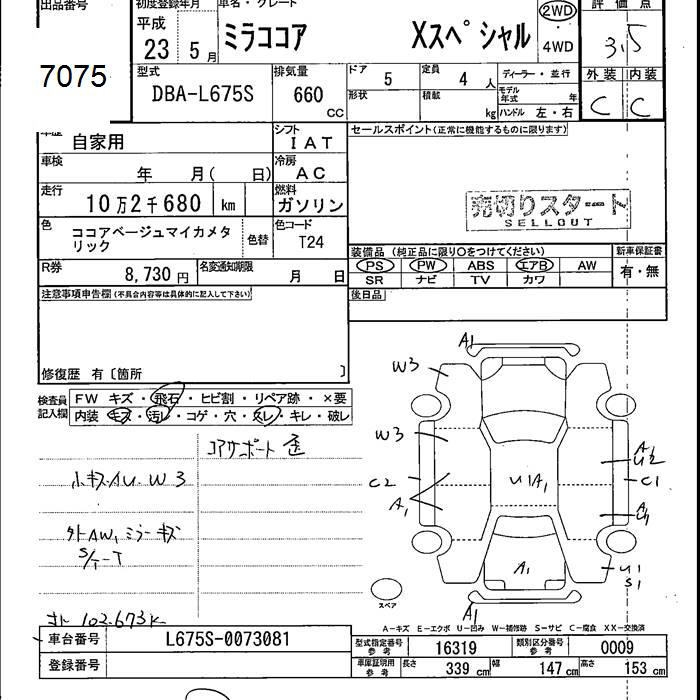 出品番号
初度登録年月
車名・グレード
評価点
平成
23 5月
ミラココア Xスペシャル
2WD
・
4WD
3.5
7075
外装 内装
C C
型式
DBA-L675S
排気量
660 CC
ドア 5
形状
定員 4 人
積載 kg
ディーラー・並行
モデル年式 年
ハンドル 左・右
自家用
シフト
IAT
セールスポイント(正常に機能するものに限ります)
車検
年 月( 日)
冷房
AC
走行
10万2千680 km
燃料
ガソリン
売切りスタート
SELLOUT
色
ココアベージュマイカメタリック
色替
色コード
T24
装備品 (純正品に限り○をつけてください)
新車保証書
PS PW ABS エアB AW
SR ナビ TV カワ
有・無
R券
8,730 円
名変通知期限
月 日
注意事項申告欄(不具合内容等は具体的に記入して下さい)
後日品
修復歴 有〔箇所 〕
検査員
記入欄
FW キズ・飛石・ヒビ割・リペア跡・×要
内装 キズ・汚レ・コゲ・穴・スレ・キレ・破レ
コアサポート歪
小キズAU.W3
外AW,ミラーキズ
オト 102.673K
A1
W3
W3
C2
A1
U1A1
A1
C1
U1
S1
A1
スペア
A-キズ E-エクボ U-凹み W-補修跡 S-サビ C-腐食 XX-交換済
車台番号
L675S-0073081
登録番号
型式指定番号
参考
16319
類別区分番号
参考
0009
車庫証明用
参考
長さ 339 cm 幅 147 cm 高さ 153 cm